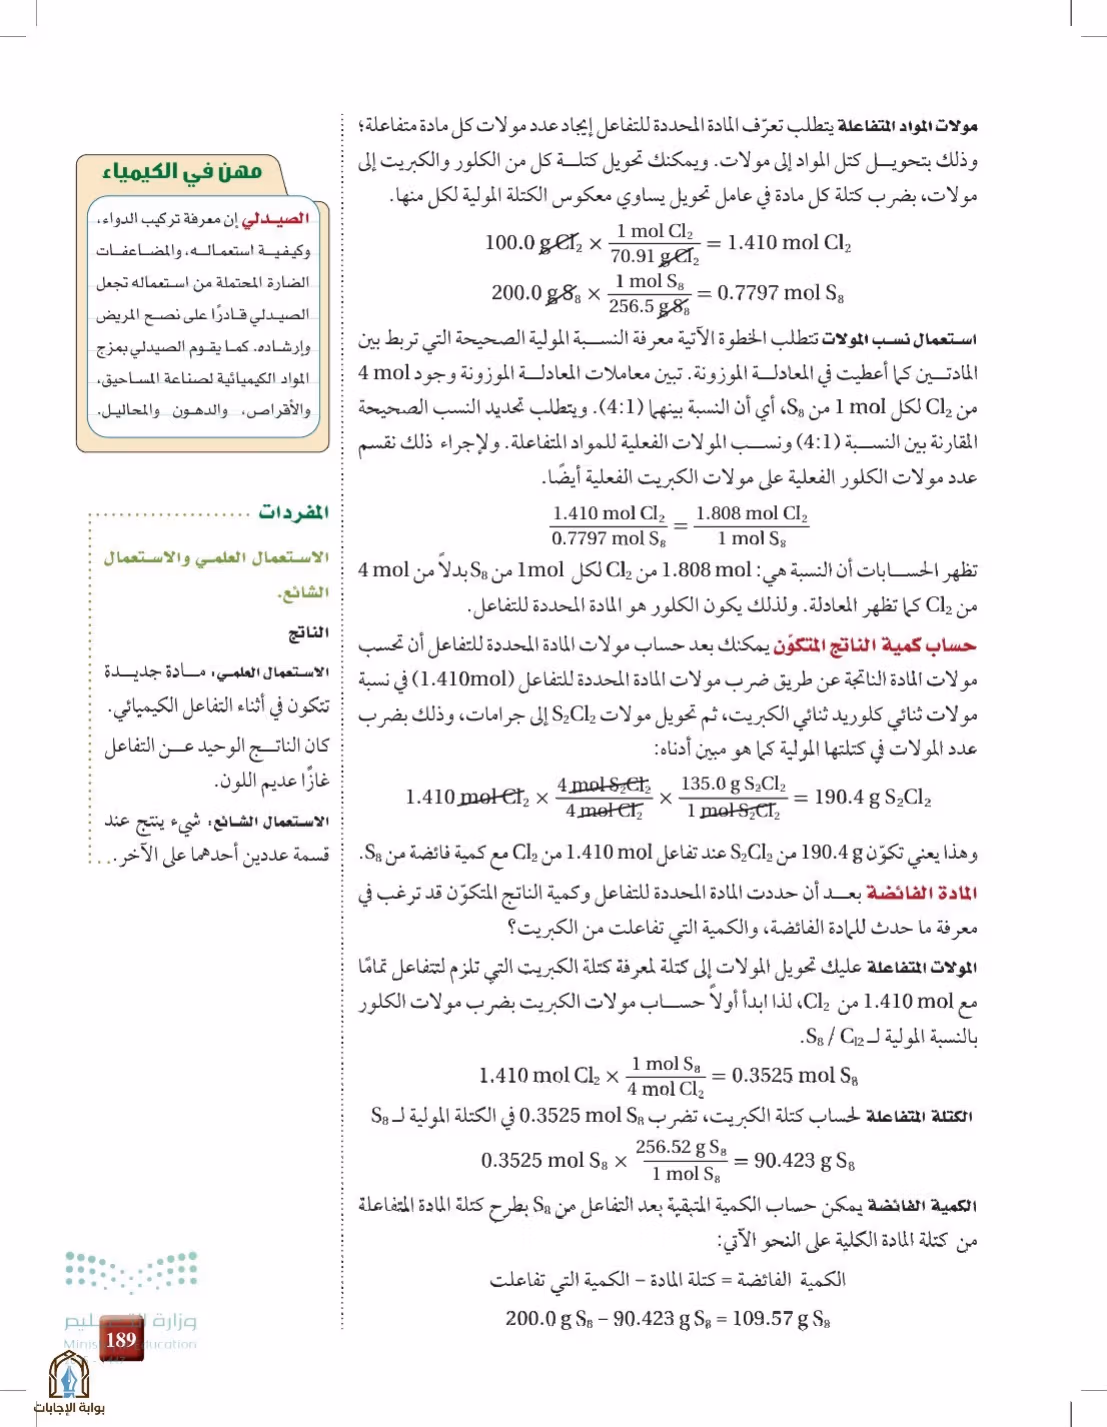 مولات المواد المتفاعلة يتطلب تعرّف المادة المحددة للتفاعل إيجاد عدد مولات كل مادة متفاعلة؛
وذلك بتحويل كتل المواد إلى مولات. ويمكنك تحويل كتلة كل من الكلور والكبريت إلى
مولات، بضرب كتلة كل مادة في عامل تحويل يساوي معكوس الكتلة المولية لكل منها.
100.0 g Cl₂ × 1 mol Cl₂ / 70.91 g Cl₂ = 1.410 mol Cl₂
200.0 g S₈ × 1 mol S₈ / 256.5 g S₈ = 0.7797 mol S₈
استعمال نسب المولات تتطلب الخطوة الآتية معرفة النسبة المولية الصحيحة التي تربط بين
المادتين كما أعطيت في المعادلة الموزونة. تبين معاملات المعادلة الموزونة وجود 4 mol
من Cl₂ لكل 1 mol من S₈، أي أن النسبة بينهما (4:1). ويتطلب تحديد النسب الصحيحة
المقارنة بين النسبة (4:1) ونسب المولات الفعلية للمواد المتفاعلة. ولإجراء ذلك نقسم
عدد مولات الكلور الفعلية على مولات الكبريت الفعلية أيضًا.
1.410 mol Cl₂ / 0.7797 mol S₈ = 1.808 mol Cl₂ / 1 mol S₈
تظهر الحسابات أن النسبة هي: 1.808 mol من Cl₂ لكل 1mol من S₈ بدلاً من 4 mol
من Cl₂ كما تظهر المعادلة. ولذلك يكون الكلور هو المادة المحددة للتفاعل.
حساب كمية الناتج المتكوّن يمكنك بعد حساب مولات المادة المحددة للتفاعل أن تحسب
مولات المادة الناتجة عن طريق ضرب مولات المادة المحددة للتفاعل (1.410mol) في نسبة
مولات ثنائي كلوريد ثنائي الكبريت، ثم تحويل مولات S₂Cl₂ إلى جرامات، وذلك بضرب
عدد المولات في كتلتها المولية كما هو مبين أدناه:
1.410 mol Cl₂ × 4 mol S₂Cl₂ / 4 mol Cl₂ × 135.0 g S₂Cl₂ / 1 mol S₂Cl₂ = 190.4 g S₂Cl₂
وهذا يعني تكوّن 190.4 g من S₂Cl₂ عند تفاعل 1.410 mol من Cl₂ مع كمية فائضة من S₈.
المادة الفائضة بعد أن حددت المادة المحددة للتفاعل وكمية الناتج المتكوّن قد ترغب في
معرفة ما حدث للمادة الفائضة، والكمية التي تفاعلت من الكبريت؟
المولات المتفاعلة عليك تحويل المولات إلى كتلة لمعرفة كتلة الكبريت التي تلزم لتتفاعل تمامًا
مع 1.410 mol من Cl₂، لذا ابدأ أولاً حساب مولات الكبريت بضرب مولات الكلور
بالنسبة المولية لـ S₈ / Cl₂.
1.410 mol Cl₂ × 1 mol S₈ / 4 mol Cl₂ = 0.3525 mol S₈
الكتلة المتفاعلة لحساب كتلة الكبريت، تضرب 0.3525 mol S₈ في الكتلة المولية لـ S₈
0.3525 mol S₈ × 256.52 g S₈ / 1 mol S₈ = 90.423 g S₈
الكمية الفائضة يمكن حساب الكمية المتبقية بعد التفاعل من S₈ بطرح كتلة المادة المتفاعلة
من كتلة المادة الكلية على النحو الآتي:
الكمية الفائضة = كتلة المادة – الكمية التي تفاعلت
200.0 g S₈ – 90.423 g S₈ = 109.57 g S₈
مهن في الكيمياء
الصيدلي إن معرفة تركيب الدواء،
وكيفية استعماله، والمضاعفات
الضارة المحتملة من استعماله تجعل
الصيدلي قادرًا على نصح المريض
وإرشاده. كما يقوم الصيدلي بمزج
المواد الكيميائية لصناعة المساحيق،
والأقراص، والدهون والمحاليل.
المفردات
الاستعمال العلمي والاستعمال
الشائع.
الناتج
الاستعمال العلمي: مادة جديدة
تتكون في أثناء التفاعل الكيميائي.
كان الناتج الوحيد عن التفاعل
غازًا عديم اللون.
الاستعمال الشائع: شيء ينتج عند
قسمة عددين أحدهما على الآخر.
وزارة التعليم
189
بوابة الإجابات